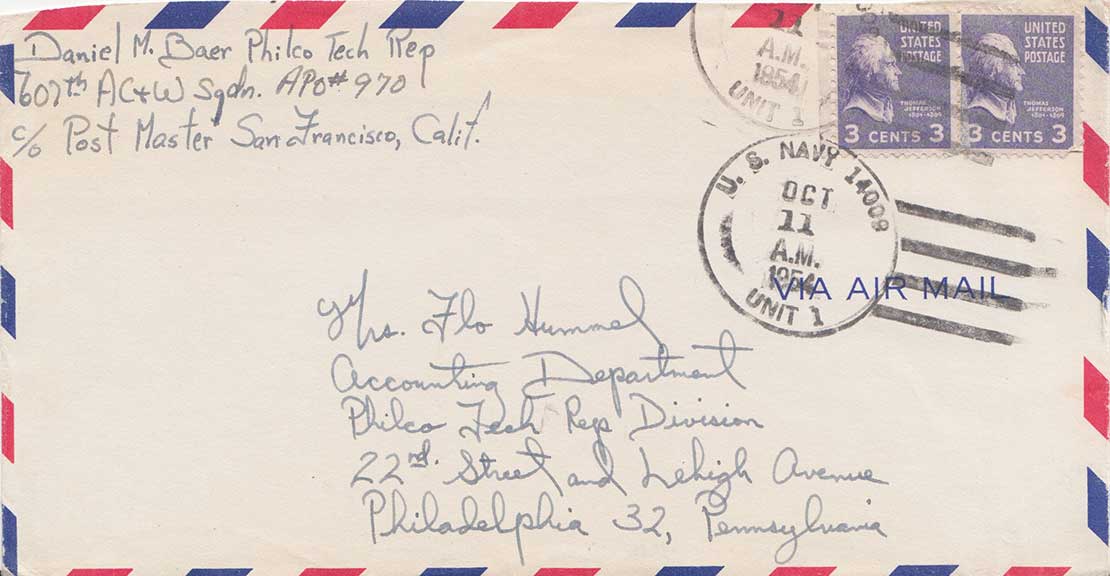 Daniel M. Baer Philco Tech Rep
607th AC&W Sqdn. APO# 970
c/o Post Master San Francisco, Calif.
11
A.M.
1954
UNIT 1
UNITED
STATES
POSTAGE
THOMAS
JEFFERSON
1801-1809
3 CENTS 3
UNITED
STATES
POSTAGE
THOMAS
JEFFERSON
1801-1809
3 CENTS 3
U. S. NAVY 14009
OCT
11
A.M.
1954
UNIT 1
VIA AIR MAIL
Mrs. Flo Hummel
Accounting Department
Philco Tech Rep Division
22nd. Street and Lehigh Avenue
Philadelphia 32, Pennsylvania